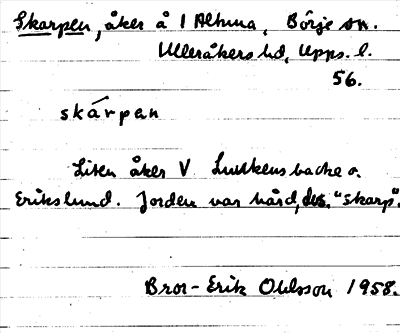 Skarpen, åker å 1 Altuna, Börje sn.
Ulleråkers hd, Upps. l.
56.
skárpen
Liten åker V. Lustkens backe o.
Erikslund. Jorden var hård, dvs. "skarp".
Bror-Erik Ohlsson 1958.